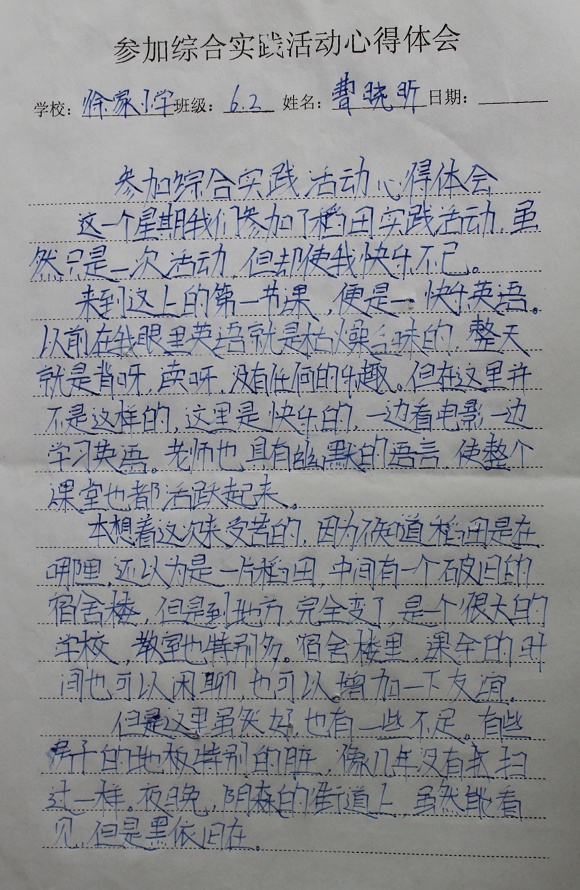 参加综合实践活动心得体会
学校：徐家小学班级：6.2 姓名：曹晓昕日期：
参加综合实践活动心得体会
这一个星期我们参加了稻田实践活动，虽
然只是一次活动，但却使我快乐不已。
来到这上的第一节课，便是一快乐英语。
以前在我眼里英语就是枯燥乏味的，整天
就是背呀，读呀，没有任何的乐趣。但在这里并
不是这样的，这里是快乐的，一边看电影一边
学习英语。老师也具有幽默的语言，使整个
课堂也都活跃起来。
本想着这次来受苦的，因为不知道稻田是在
哪哩，还以为是一片稻田，中间有一个破旧的
宿舍楼，但是到地方，完全变了，是一个很大的
学校，教室也特别多。宿舍楼里，课余的时
间也可以闲聊，也可以增加一下友谊。
但是这里虽然好，也有一些不足。有些
房子的地板特别的脏，像几年没有打扫
过一样。夜晚，阴森的街道上，虽然能看
见，但是黑依旧在。